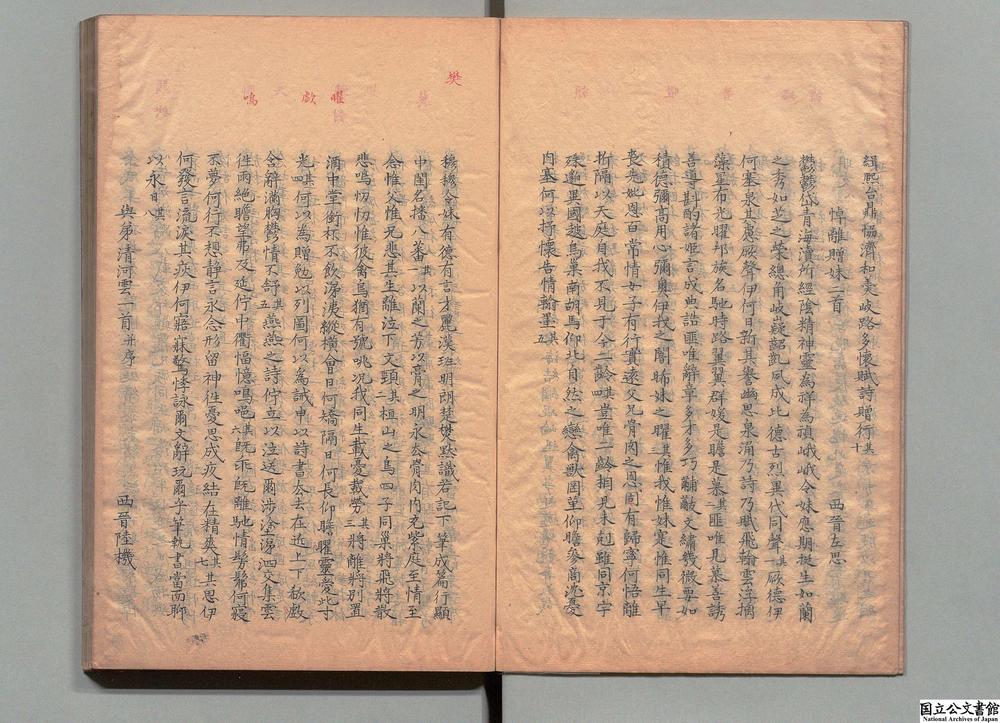 緝熙台鼎恊濟和羹岐路多懷賦詩贈行其十
悼離贈妹二首　西晉左思
鬱鬱岱青海瀆所經陰精神靈為祥為禎峨峨令妹應期挺生如蘭
之秀如芝之榮總角岐嶷齠齔夙成比德古烈異代同聲其一厥德伊
何塞泉其慮厥聲伊何日新其譽幽思泉涌乃詩乃賦飛翰雲浮摛
藻星布光曜邦族名馳時路翼翼群媛是瞻是慕其二匪唯見慕善誘
善導斟酌諸姬言成典誥匪唯辭章多才多巧黼黻文繡幾微要如
積德彌高用心彌奧伊我之闇睎妹之曜其三惟我惟妹寔惟同生早
喪先妣恩百常情女子有行實遠父兄骨肉之恩固有歸寧何悟離
拆隔以天庭自我不見于今二齡其四豈唯二齡相見未尅雖同京宇
殊邈異國越鳥巢南胡馬仰北自然之戀禽獸罔革仰瞻參商沈憂
內塞何以抒懷告情翰墨其五
樊
曜
歔
嗚
穆穆令妹有德有言才麗漢班明朗楚樊默識若記下筆成篇行顯
中閨名播八蕃其一以蘭之芳以膏之明永去骨肉內充紫庭至情至
念惟父惟兄悲其生離泣下交頸其二桓山之鳥四子同巢將飛將散
悲鳴忉忉惟彼禽鳥猶有號咷況我同生載憂載勞其三將離將別置
酒中堂銜杯不飲涕洟縱橫會日何矯隔日何長仰瞻曜靈愛此寸
光其四何以為贈勉以列圖何以為誡申以詩書去去在近上下欷歔
含辭滿胸鬱情不舒其五燕燕之詩佇立以泣送爾涉塗涕泗交集雲
往雨絕瞻望弗及延佇中衢愊憶嗚唈其六既乖既離馳情髣髴何寢
不夢何行不想靜言永念形留神往憂思成疢結在精爽其七其思伊
何發言流淚其疢伊何寤寐驚悸詠爾文辭玩爾手筆執書當面聊
以永日其八
與弟清河雲一首并序　西晉陸機
国立公文書館
National Archives of Japan